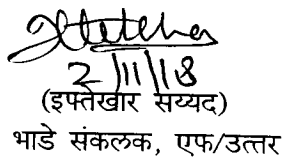 2/11/18
(इफ्तेखार सय्यद)
भाडे संकलक, एफ/उत्तर